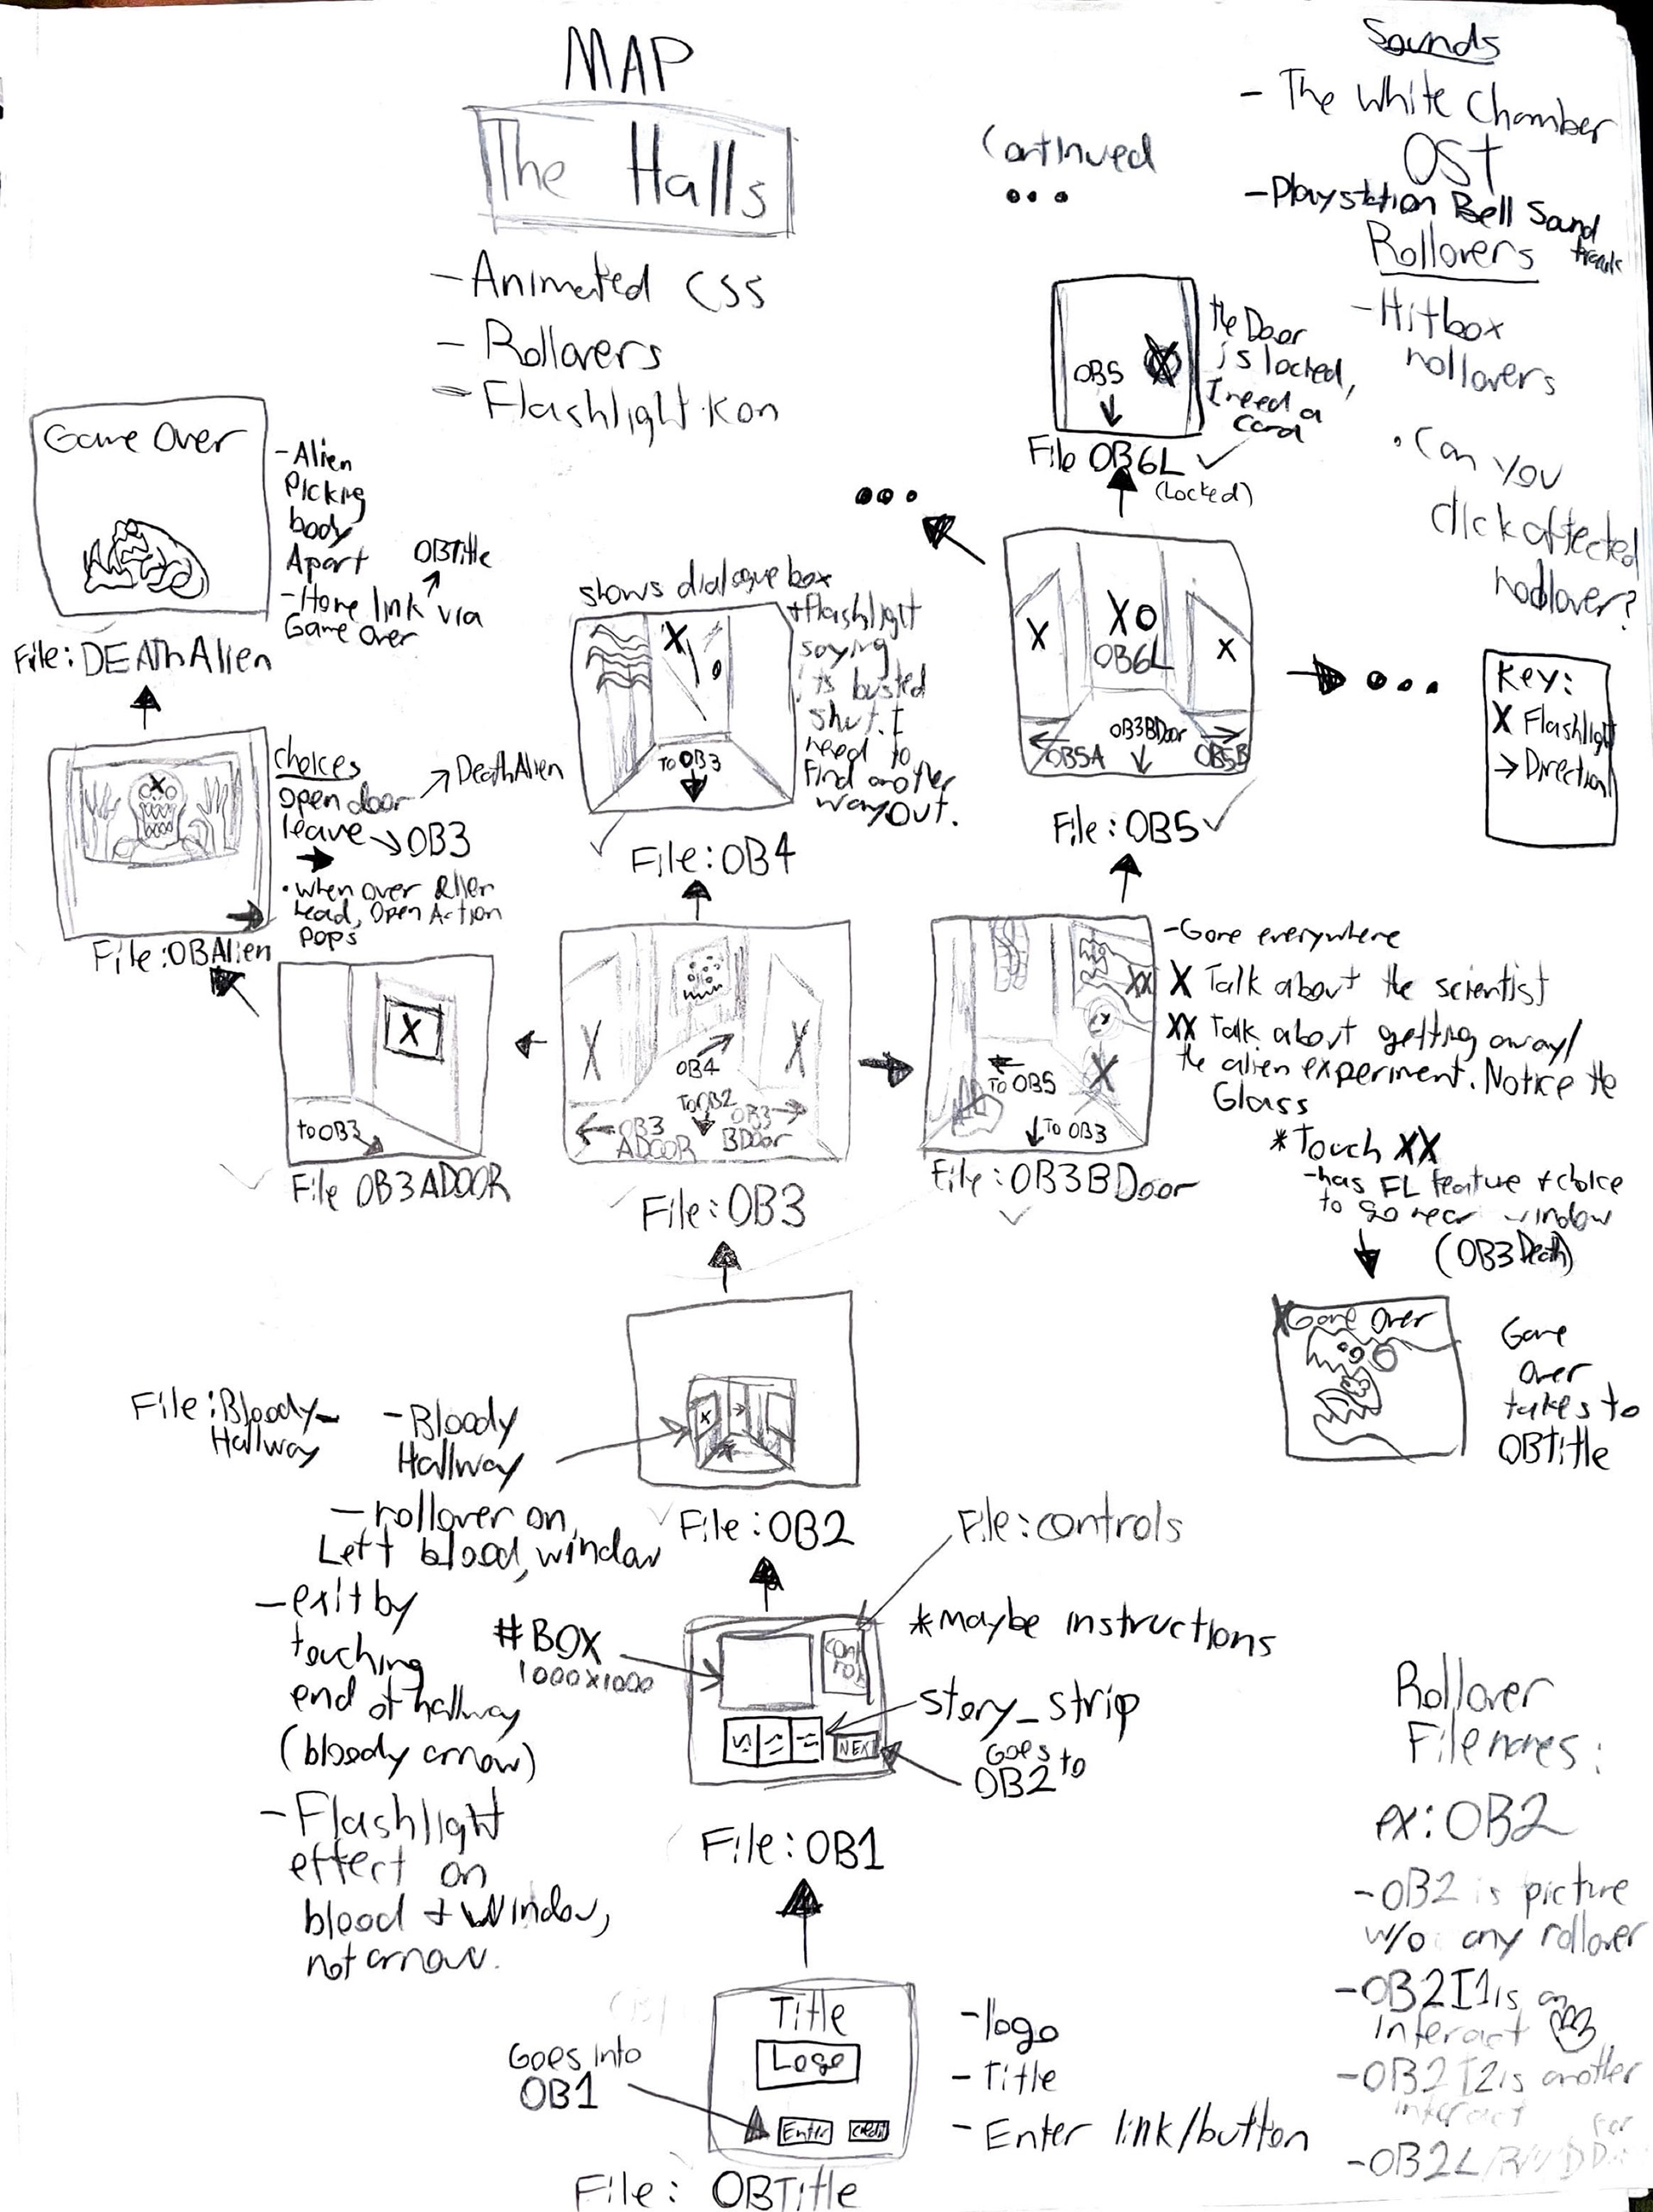 MAP
The Halls
- Animated CSS
- Rollovers
- Flashlight Kon
Continued
...
Sounds
- The White Chamber
OST
- Playstation Bell Sound
Rollovers
- Hitbox
rollovers
• Can you
click affected
rodlover?
Key:
X Flashlight
→ Direction
OB5
the Door
is locked,
I need a
Card
File OB6L
(Locked)
...
X
XO
OB6L
X
OB5A
OB3BDoor
OB5B
File: OB5
...
Game Over
- Alien
Picking
body
Apart
OBTitle
- Home link via
Game Over
File: DEATHAlien
X
choices
open door
DeathAlien
leave
OB3
• when over Alien
head, Open Action
Pops
File: OBAlien
shows dialogue box
+ flashlight
saying
is busted
shut. I
need to
Find another
way out.
X
To OB3
File: OB4
X
to OB3
File OB3ADOOR
X
X
OB4
To OB2
OB3
ADOOR
OB3
BDoor
File: OB3
XX
X
To OB5
To OB3
File: OB3BDoor
- Gore everywhere
X Talk about the scientist
XX Talk about getting away/
the alien experiment. Notice the
Glass
* Touch XX
- has FL feature + choice
to go near window
(OB3Death)
Game Over
Game
Over
takes to
OBTitle
File: Bloody-
Hallway
- Bloody
Hallway
- rollover on
Left blood, window
- exit by
touching
end of hallway
(bloody arrow)
- Flashlight
effect on
blood + Window,
not arrow.
X
File: OB2
File: controls
* Maybe instructions
#BOX
1000x1000
Cont
rols
story_strip
NEXT
Goes to
OB2
File: OB1
Title
Logo
Enter
Credit
Goes into
OB1
- logo
- Title
- Enter link/button
File: OBTitle
Rollover
Filenames:
ex: OB2
- OB2 is picture
w/o any rollover
- OB2I1 is an
Interact
- OB2I2 is another
interact
for
- OB2L